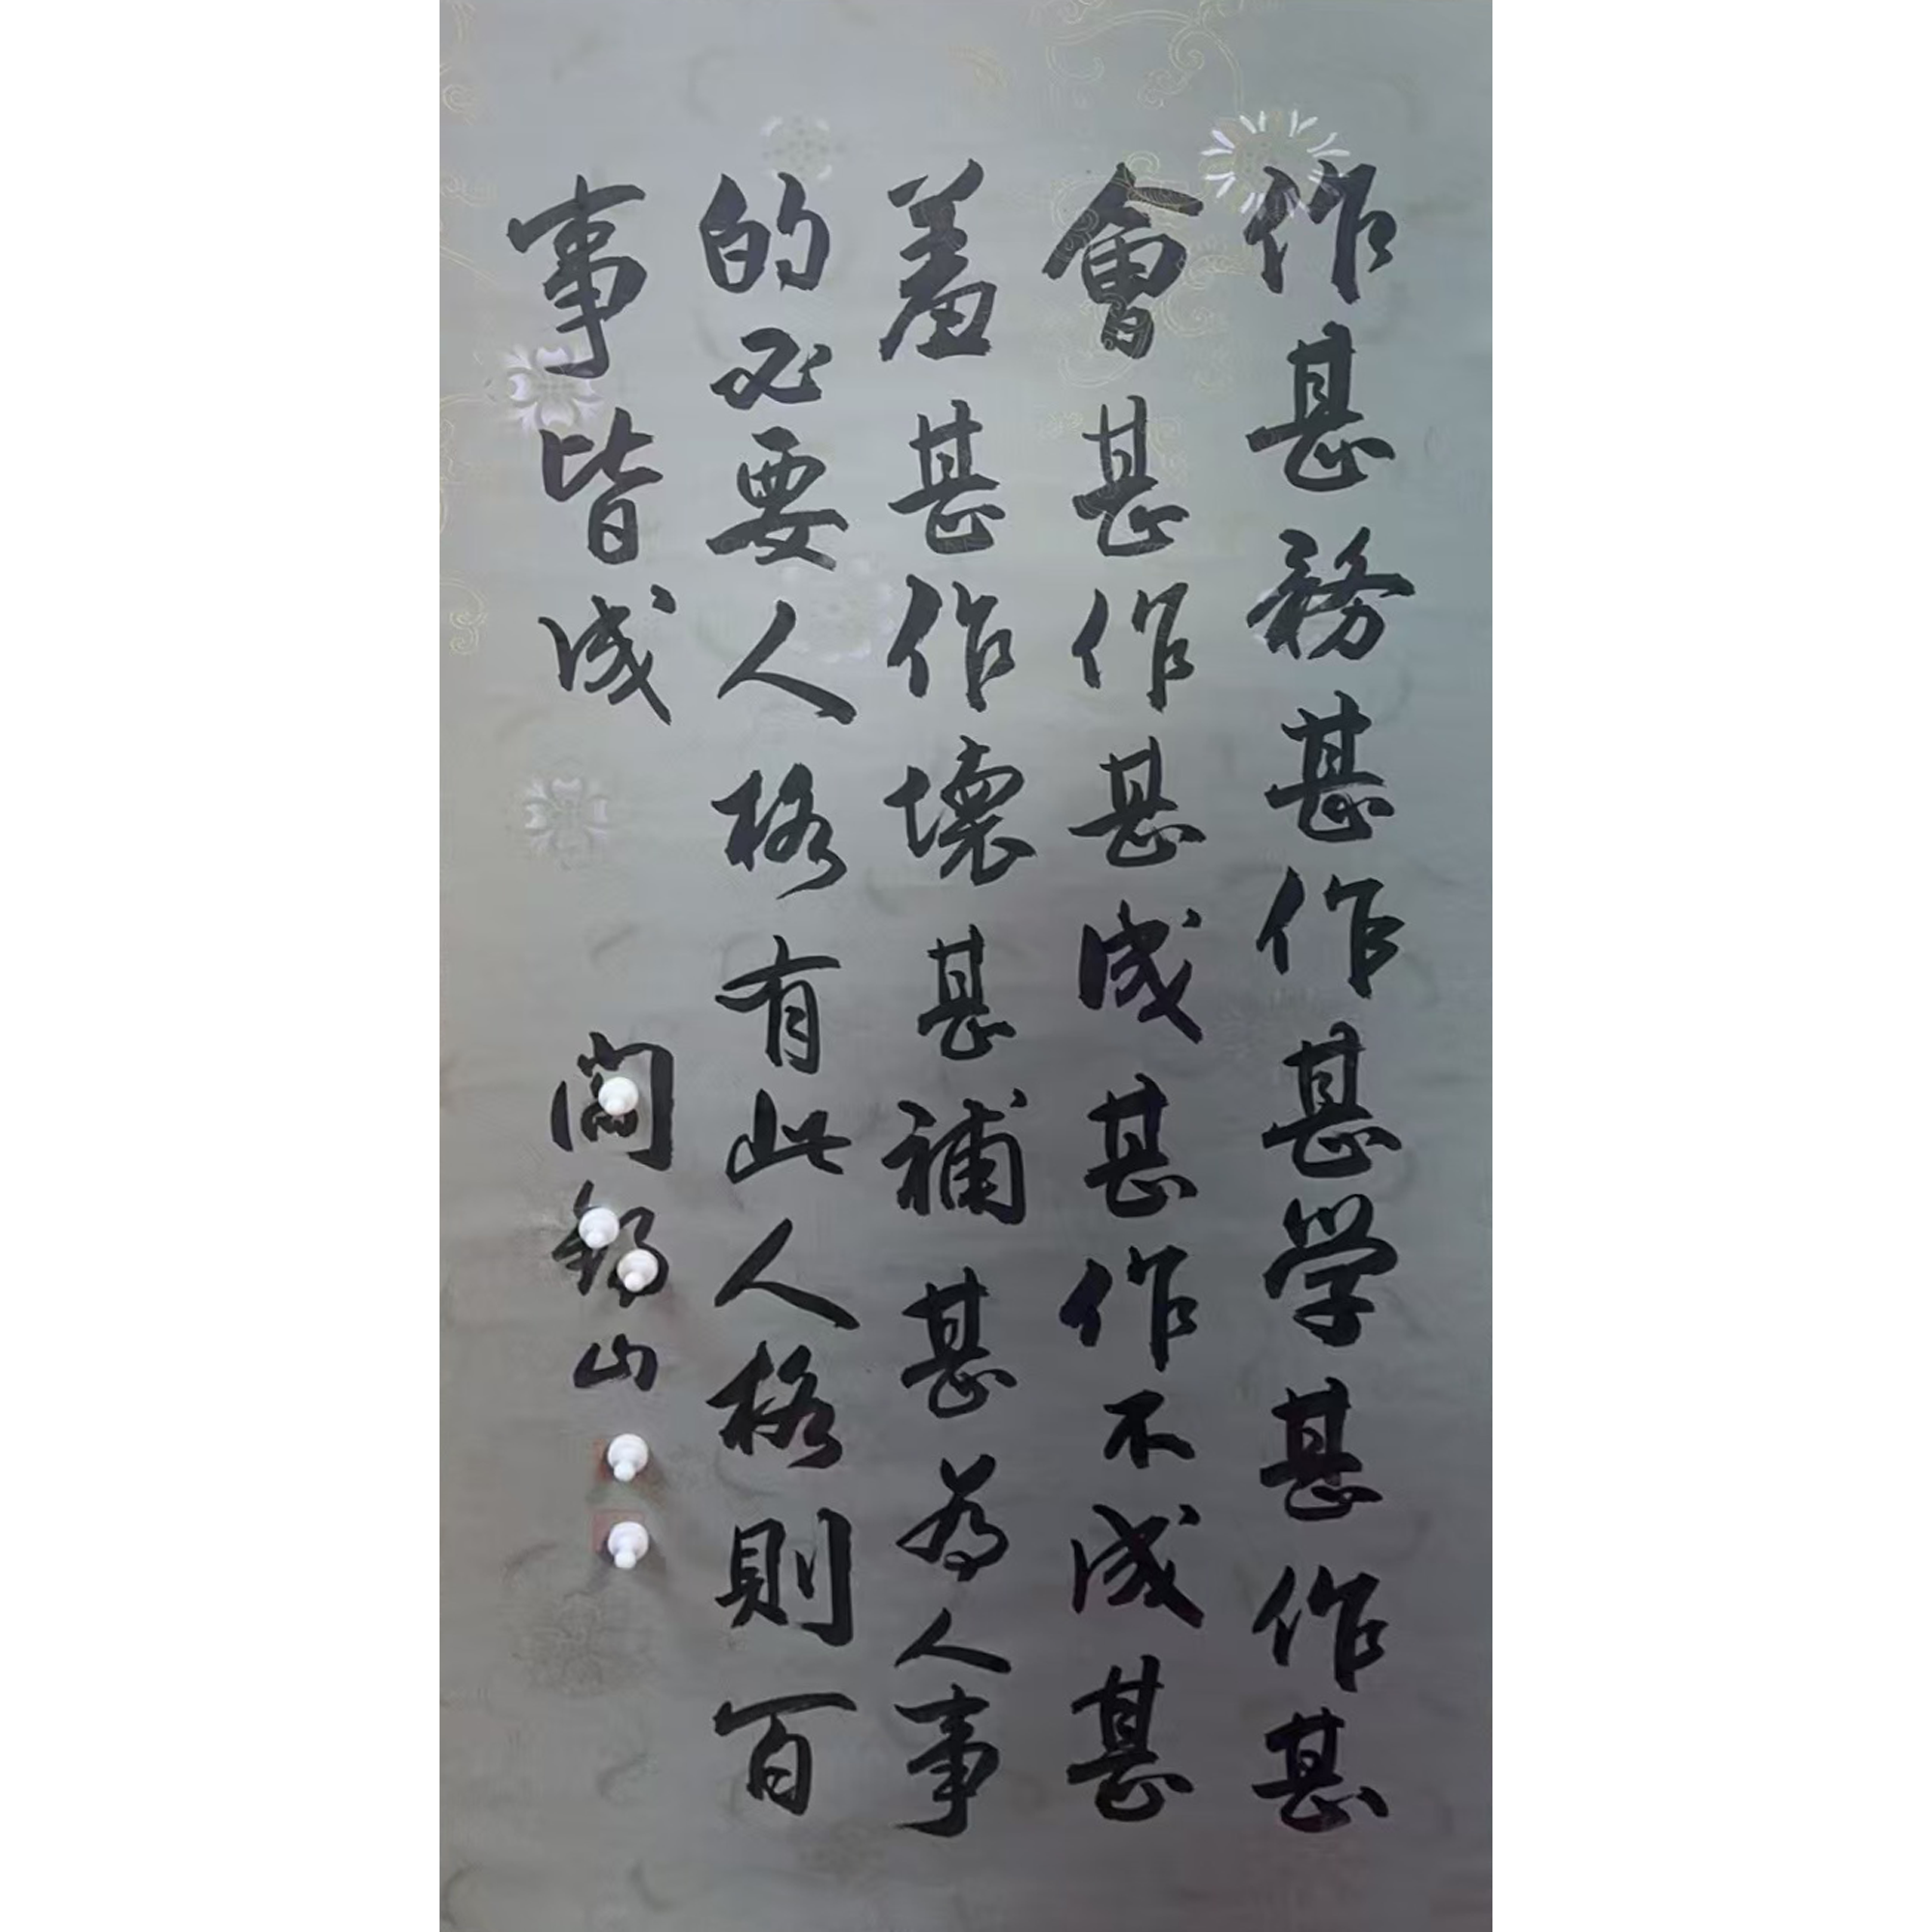 作甚務甚作甚学甚作甚
會甚作甚成甚作不成甚
羞甚作壞甚補甚為人事
的必要人格有此人格則百
事皆成
閻錫山